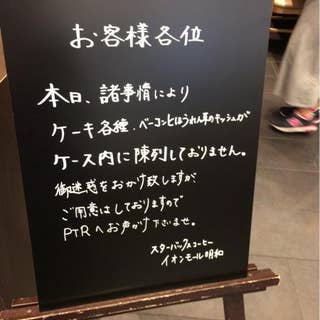 お客様各位
本日、諸事情により
ケーキ各種、ベーコンとほうれん草のキッシュが
ケース内に陳列しておりません。
御迷惑をおかけ致しますが、
ご用意はしておりますので
PTRへお声がけ下さいませ。
スターバックスコーヒー
イオンモール明和